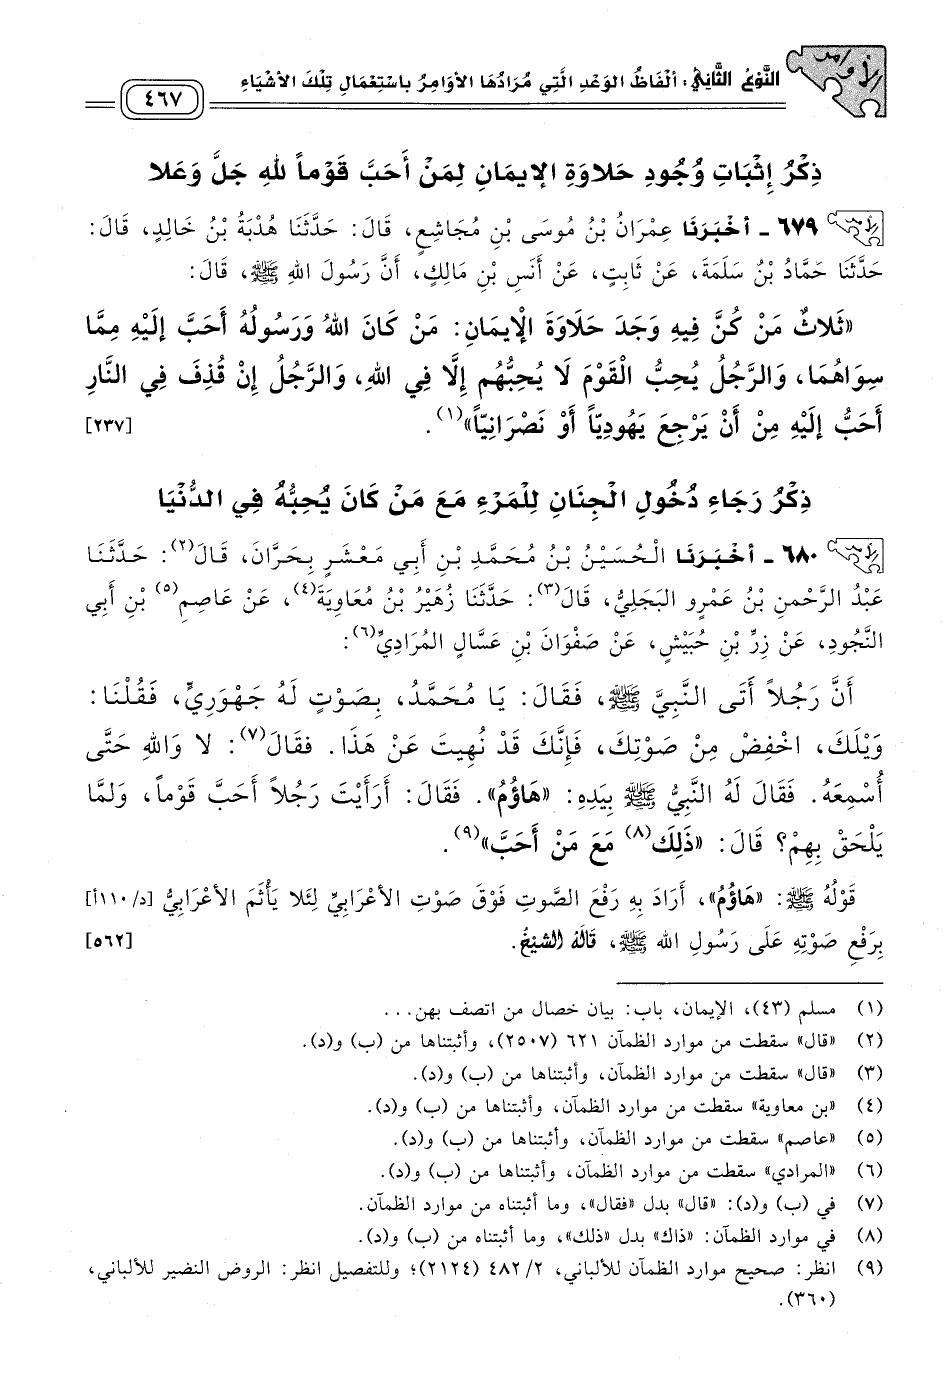 الأوامر
النَّوْعُ الثَّانِي: أَلْفَاظُ الوَعْدِ الَّتِي مُرَادُهَا الأَوَامِرُ بِاسْتِعْمَالِ تِلْكَ الأَشْيَاءِ
٤٦٧
ذِكْرُ إِثْبَاتِ وُجُودِ حَلاوَةِ الإيمَانِ لِمَنْ أَحَبَّ قَوْماً للهِ جَلَّ وَعَلا
٦٧٩ - أَخْبَرَنَا عِمْرَانُ بْنُ مُوسَى بْنِ مُجَاشِعٍ، قَالَ: حَدَّثَنَا هُدْبَةُ بْنُ خَالِدٍ، قَالَ:
حَدَّثَنَا حَمَّادُ بْنُ سَلَمَةَ، عَنْ ثَابِتٍ، عَنْ أَنَسِ بْنِ مَالِكٍ، أَنَّ رَسُولَ اللهِ ﷺ، قَالَ:
«ثَلاثٌ مَنْ كُنَّ فِيهِ وَجَدَ حَلَاوَةَ الْإِيمَانِ: مَنْ كَانَ اللهُ وَرَسُولُهُ أَحَبَّ إِلَيْهِ مِمَّا
سِوَاهُمَا، وَالرَّجُلُ يُحِبُّ الْقَوْمَ لَا يُحِبُّهُم إِلَّا فِي اللهِ، وَالرَّجُلُ إِنْ قُذِفَ فِي النَّارِ
أَحَبُّ إِلَيْهِ مِنْ أَنْ يَرْجِعَ يَهُودِيّاً أَوْ نَصْرَانِيّاً»(١). [٢٣٧]
ذِكْرُ رَجَاءِ دُخُولِ الْجِنَانِ لِلْمَرْءِ مَعَ مَنْ كَانَ يُحِبُّهُ فِي الدُّنْيَا
٦٨٠ - أَخْبَرَنَا الْحُسَيْنُ بْنُ مُحَمَّدِ بْنِ أَبِي مَعْشَرٍ بِحَرَّانَ، قَالَ(٢): حَدَّثَنَا
عَبْدُ الرَّحْمنِ بْنُ عَمْرٍو البَجَلِيُّ، قَالَ(٣): حَدَّثَنَا زُهَيْرُ بْنُ مُعَاوِيَةَ(٤)، عَنْ عَاصِمِ(٥) بْنِ أَبِي
النَّجُودِ، عَنْ زِرِّ بْنِ حُبَيْشٍ، عَنْ صَفْوَانَ بْنِ عَسَّالٍ المُرَادِيِّ(٦):
أَنَّ رَجُلاً أَتَى النَّبِيَّ ﷺ، فَقَالَ: يَا مُحَمَّدُ، بِصَوْتٍ لَهُ جَهْوَرِيٍّ، فَقُلْنَا:
وَيْلَكَ، اخْفِضْ مِنْ صَوْتِكَ، فَإِنَّكَ قَدْ نُهِيتَ عَنْ هَذَا. فقَالَ(٧): لا وَاللهِ حَتَّى
أُسْمِعَهُ. فَقَالَ لَهُ النَّبِيُّ ﷺ بِيَدِهِ: «هَاؤُمُ». فَقَالَ: أَرَأَيْتَ رَجُلاً أَحَبَّ قَوْماً، وَلمَّا
يَلْحَقْ بِهِمْ؟ قَالَ: «ذَلِكَ(٨) مَعَ مَنْ أَحَبَّ»(٩).
قَوْلُهُ ﷺ: «هَاؤُمُ»، أَرَادَ بِهِ رَفْعَ الصَّوتِ فَوْقَ صَوْتِ الأَعْرَابِيِّ لِئَلا يَأْثَمَ الأَعْرَابِيُّ [د/١١٠أ]
بِرَفْعِ صَوْتِهِ عَلَى رَسُولِ الله ﷺ، قَالَهُ الشَّيْخُ. [٥٦٢]
(١) مسلم (٤٣)، الإيمان، باب: بيان خصال من اتصف بهن...
(٢) «قال» سقطت من موارد الظمآن ٦٢١ (٢٥٠٧)، وأثبتناها من (ب) و(د).
(٣) «قال» سقطت من موارد الظمآن، وأثبتناها من (ب) و(د).
(٤) «بن معاوية» سقطت من موارد الظمآن، وأثبتناها من (ب) و(د).
(٥) «عاصم» سقطت من موارد الظمآن، وأثبتناها من (ب) و(د).
(٦) «المرادي» سقطت من موارد الظمآن، وأثبتناها من (ب) و(د).
(٧) في (ب) و(د): «قال» بدل «فقال»، وما أثبتناه من موارد الظمآن.
(٨) في موارد الظمآن: «ذاك» بدل «ذلك»، وما أثبتناه من (ب) و(د).
(٩) انظر: صحيح موارد الظمآن للألباني، ٤٨٢/٢ (٢١٢٤)؛ وللتفصيل انظر: الروض النضير للألباني،
(٣٦٠).